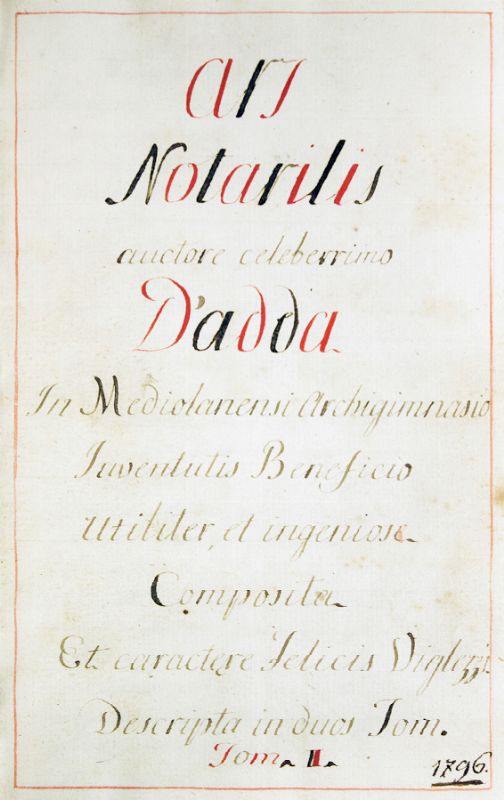 Ars
Notarilis
auctore celeberrimo
D'adda
In Mediolanensi Archigimnasio
Iuventutis Beneficio
Utiliter, et ingeniose
Composita
Et caractere Felicis Viglezzi
Descripta in duos Tom.
Tom. II.
1796.